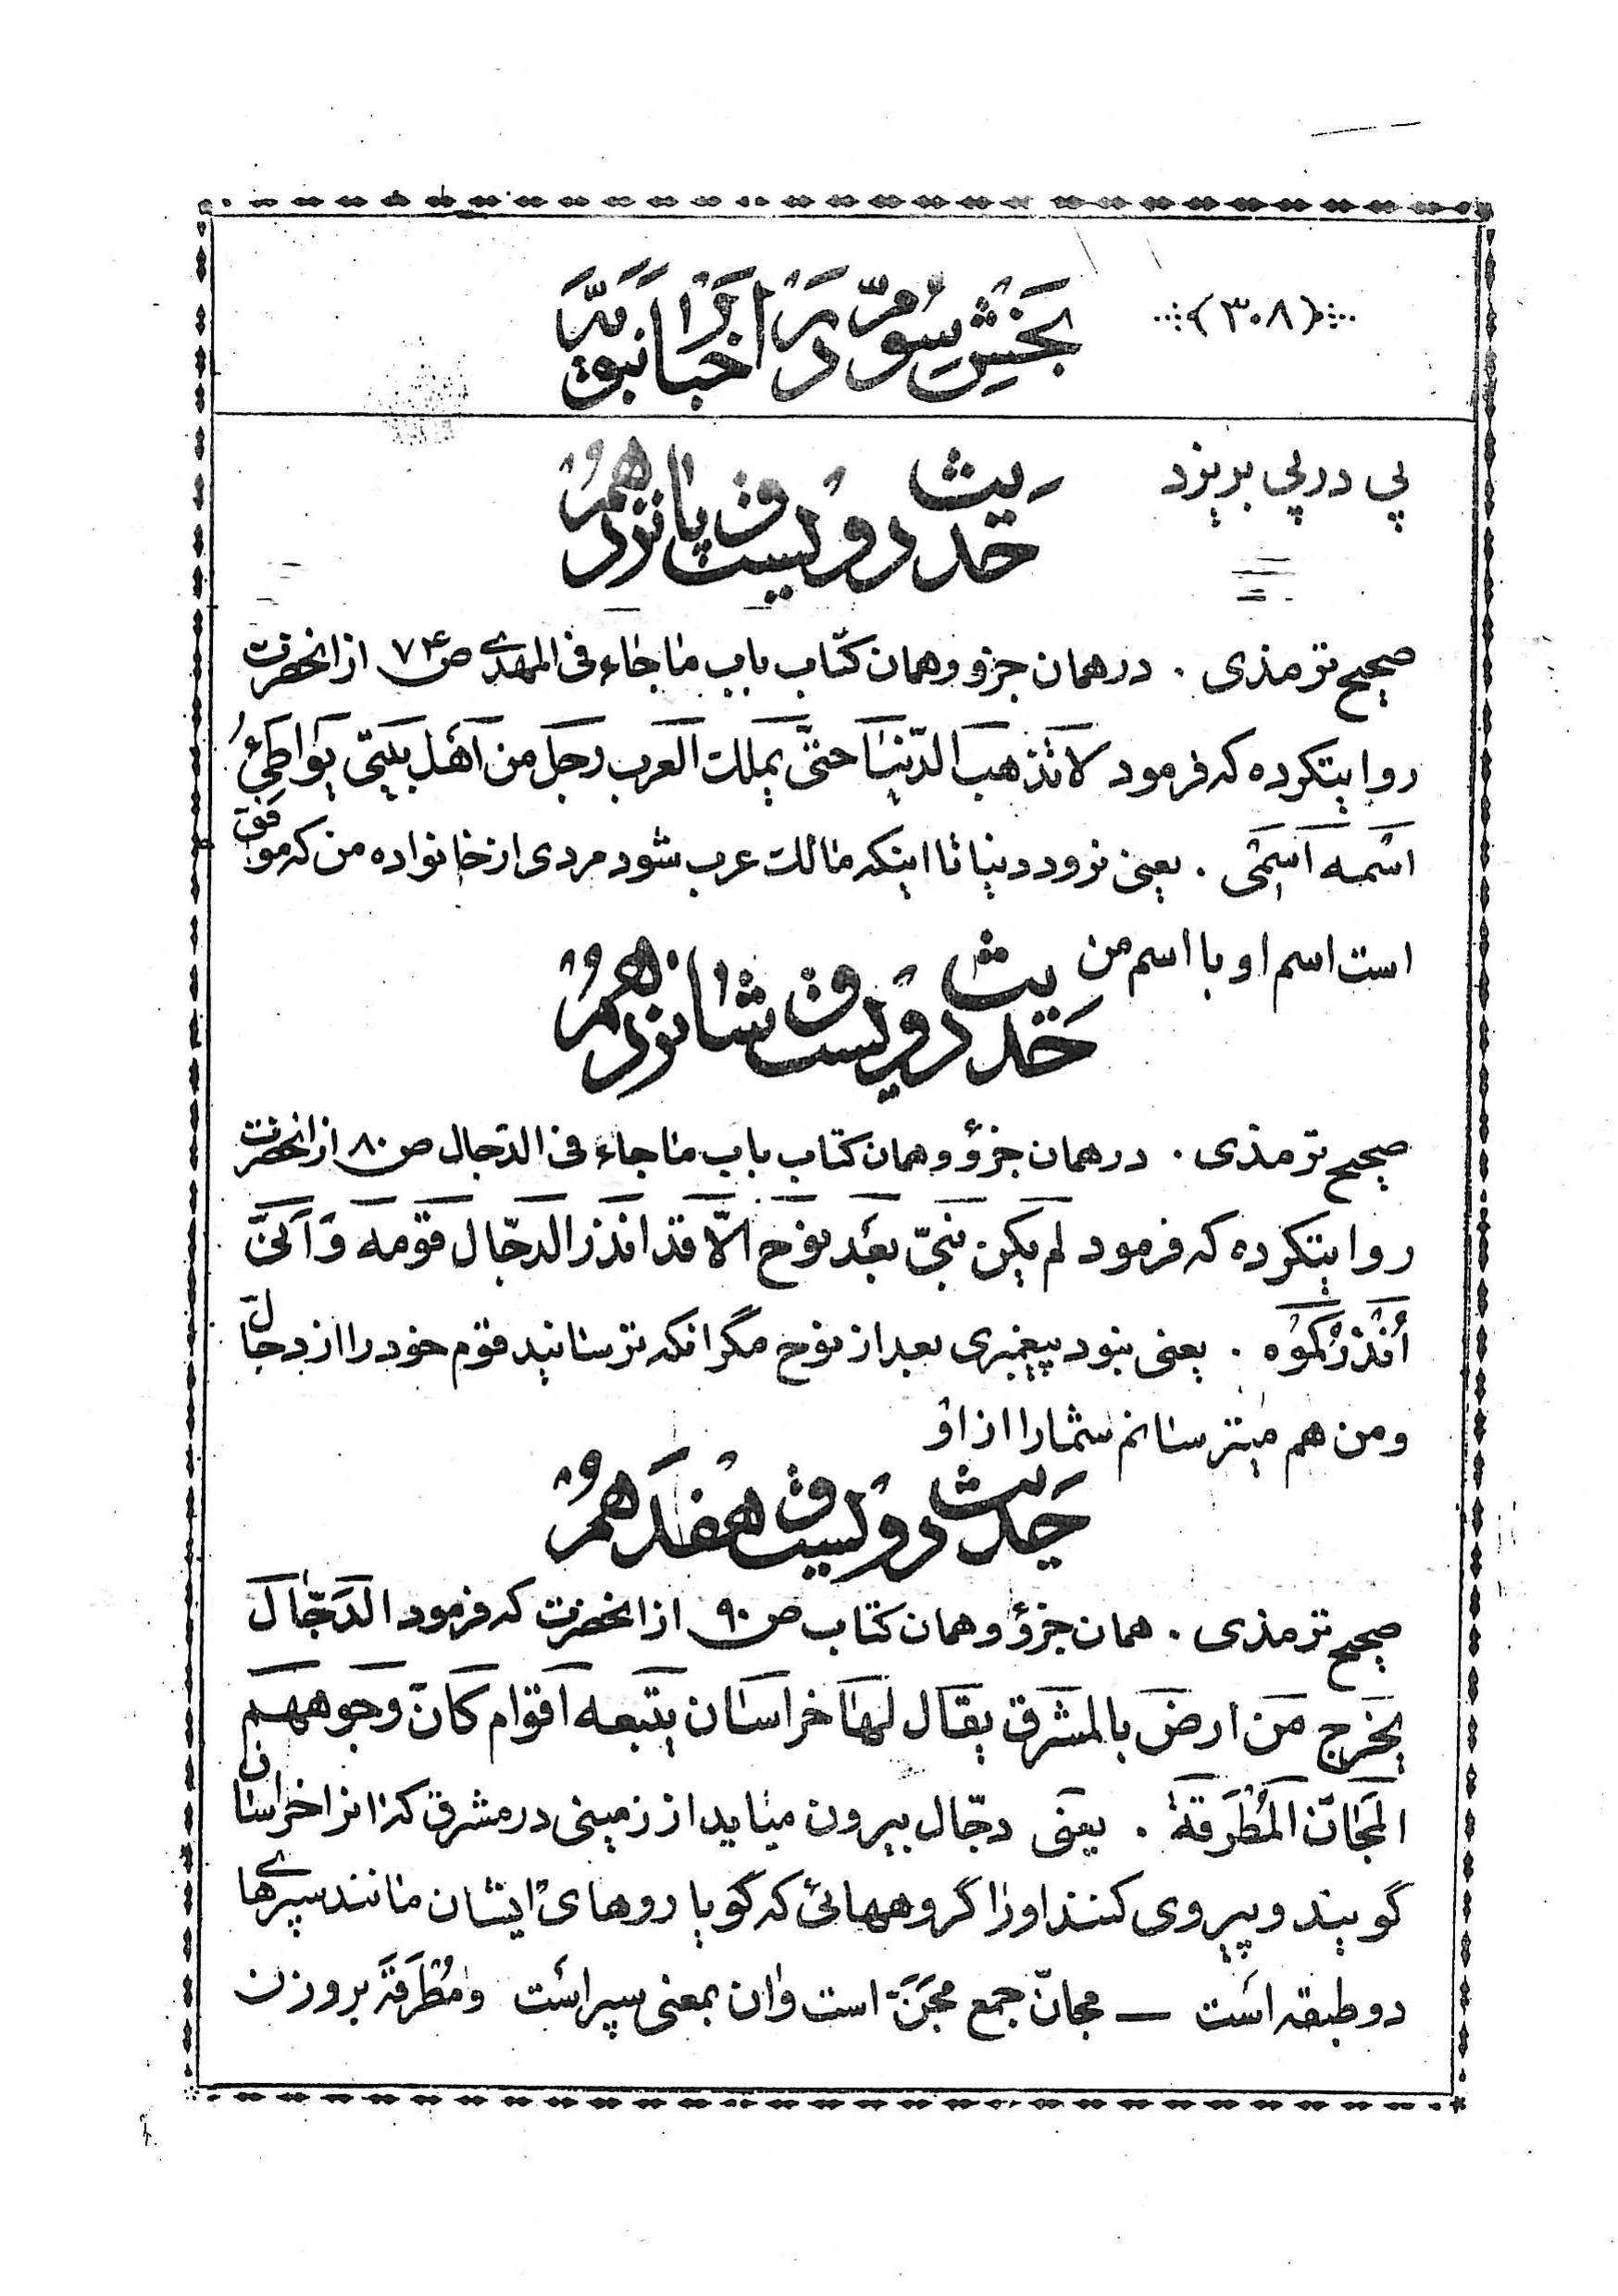 ﴿۳۰۸﴾
بخش سوم در اخبار نبویه
پی در پی بریزد
حدیث دویست و پانزدهم
صحیح ترمذی . در همان جزو و همان کتاب باب ما جاء فی المهدی ص ۷۴ از انحضرت
روایتکرده که فرمود لا تذهب الدّنیا حتّی یملک العرب رجل من اهل بیتی یواطیُ
اسمه اسمی . یعنی نرود دنیا تا اینکه مالک عرب شود مردی از خانواده من که موافق
است اسم او با اسم من
حدیث دویست و شانزدهم
صحیح ترمذی . در همان جزؤ و همان کتاب باب ما جاء فی الدّجال ص ۸۰ از انحضرت
روایتکرده که فرمود لم یکن نبیّ بعد نوح الّا قد انذر الدجّال قومه و انّی
اُنذرکموه . یعنی نبود پیغمبری بعد از نوح مگر انکه ترسانید قوم خود را از دجال
و من هم میترسانم شما را از او
حدیث دویست و هفدهم
صحیح ترمذی . همان جزؤ و همان کتاب ص ۹۰ از انحضرت که فرمود الدّجّال
یخرج من ارض بالمشرق یقال لها خراسان یتبعه اقوام کان وجوههم
المجانّ المطرقة . یعنی دجّال بیرون میاید از زمینی در مشرق که انرا خراسان
گویند و پیروی کنند او را گروههائی که گویا روهای ایشان مانند سپرهای
دو طبقه است — مجانّ جمع مجنّ است و ان بمعنی سپر است و مُطرَقَة بر وزن